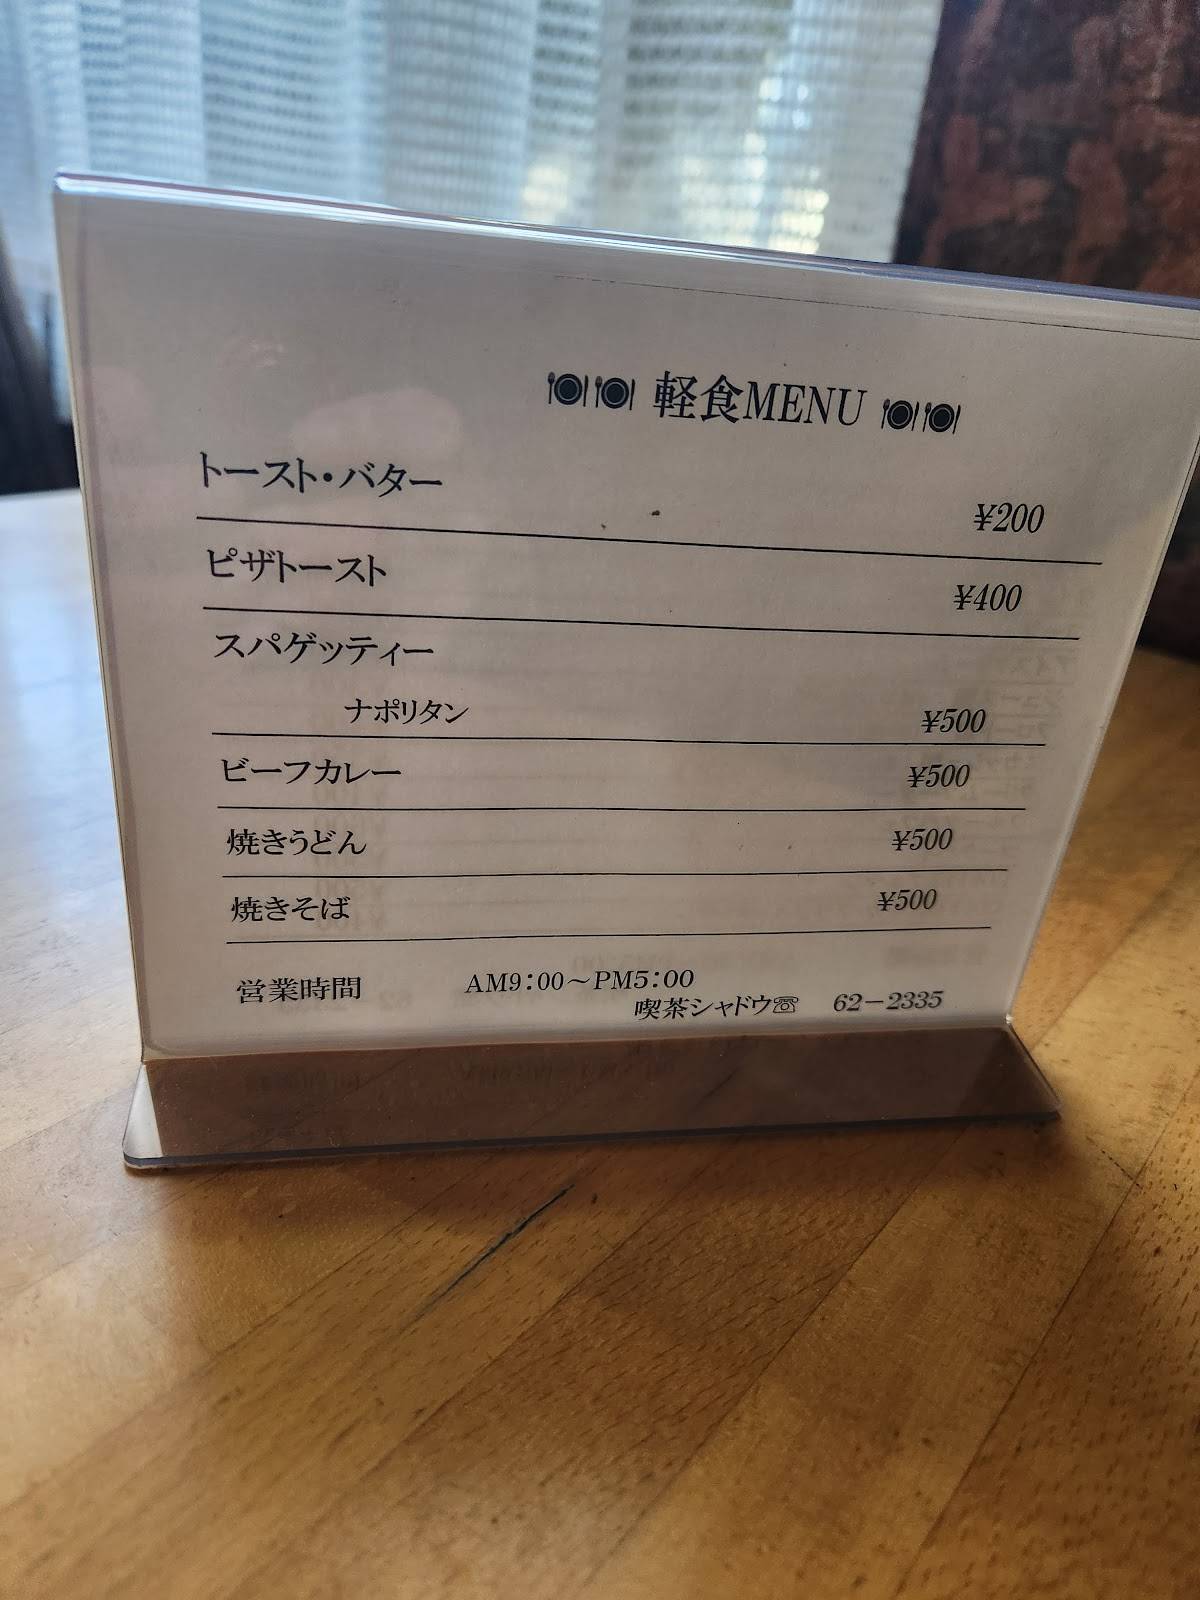 🍽🍽 軽食MENU 🍽🍽
トースト・バター ¥200
ピザトースト ¥400
スパゲッティー
ナポリタン ¥500
ビーフカレー ¥500
焼きうどん ¥500
焼きそば ¥500
営業時間 AM9:00～PM5:00
喫茶シャドウ☏ 62－2335